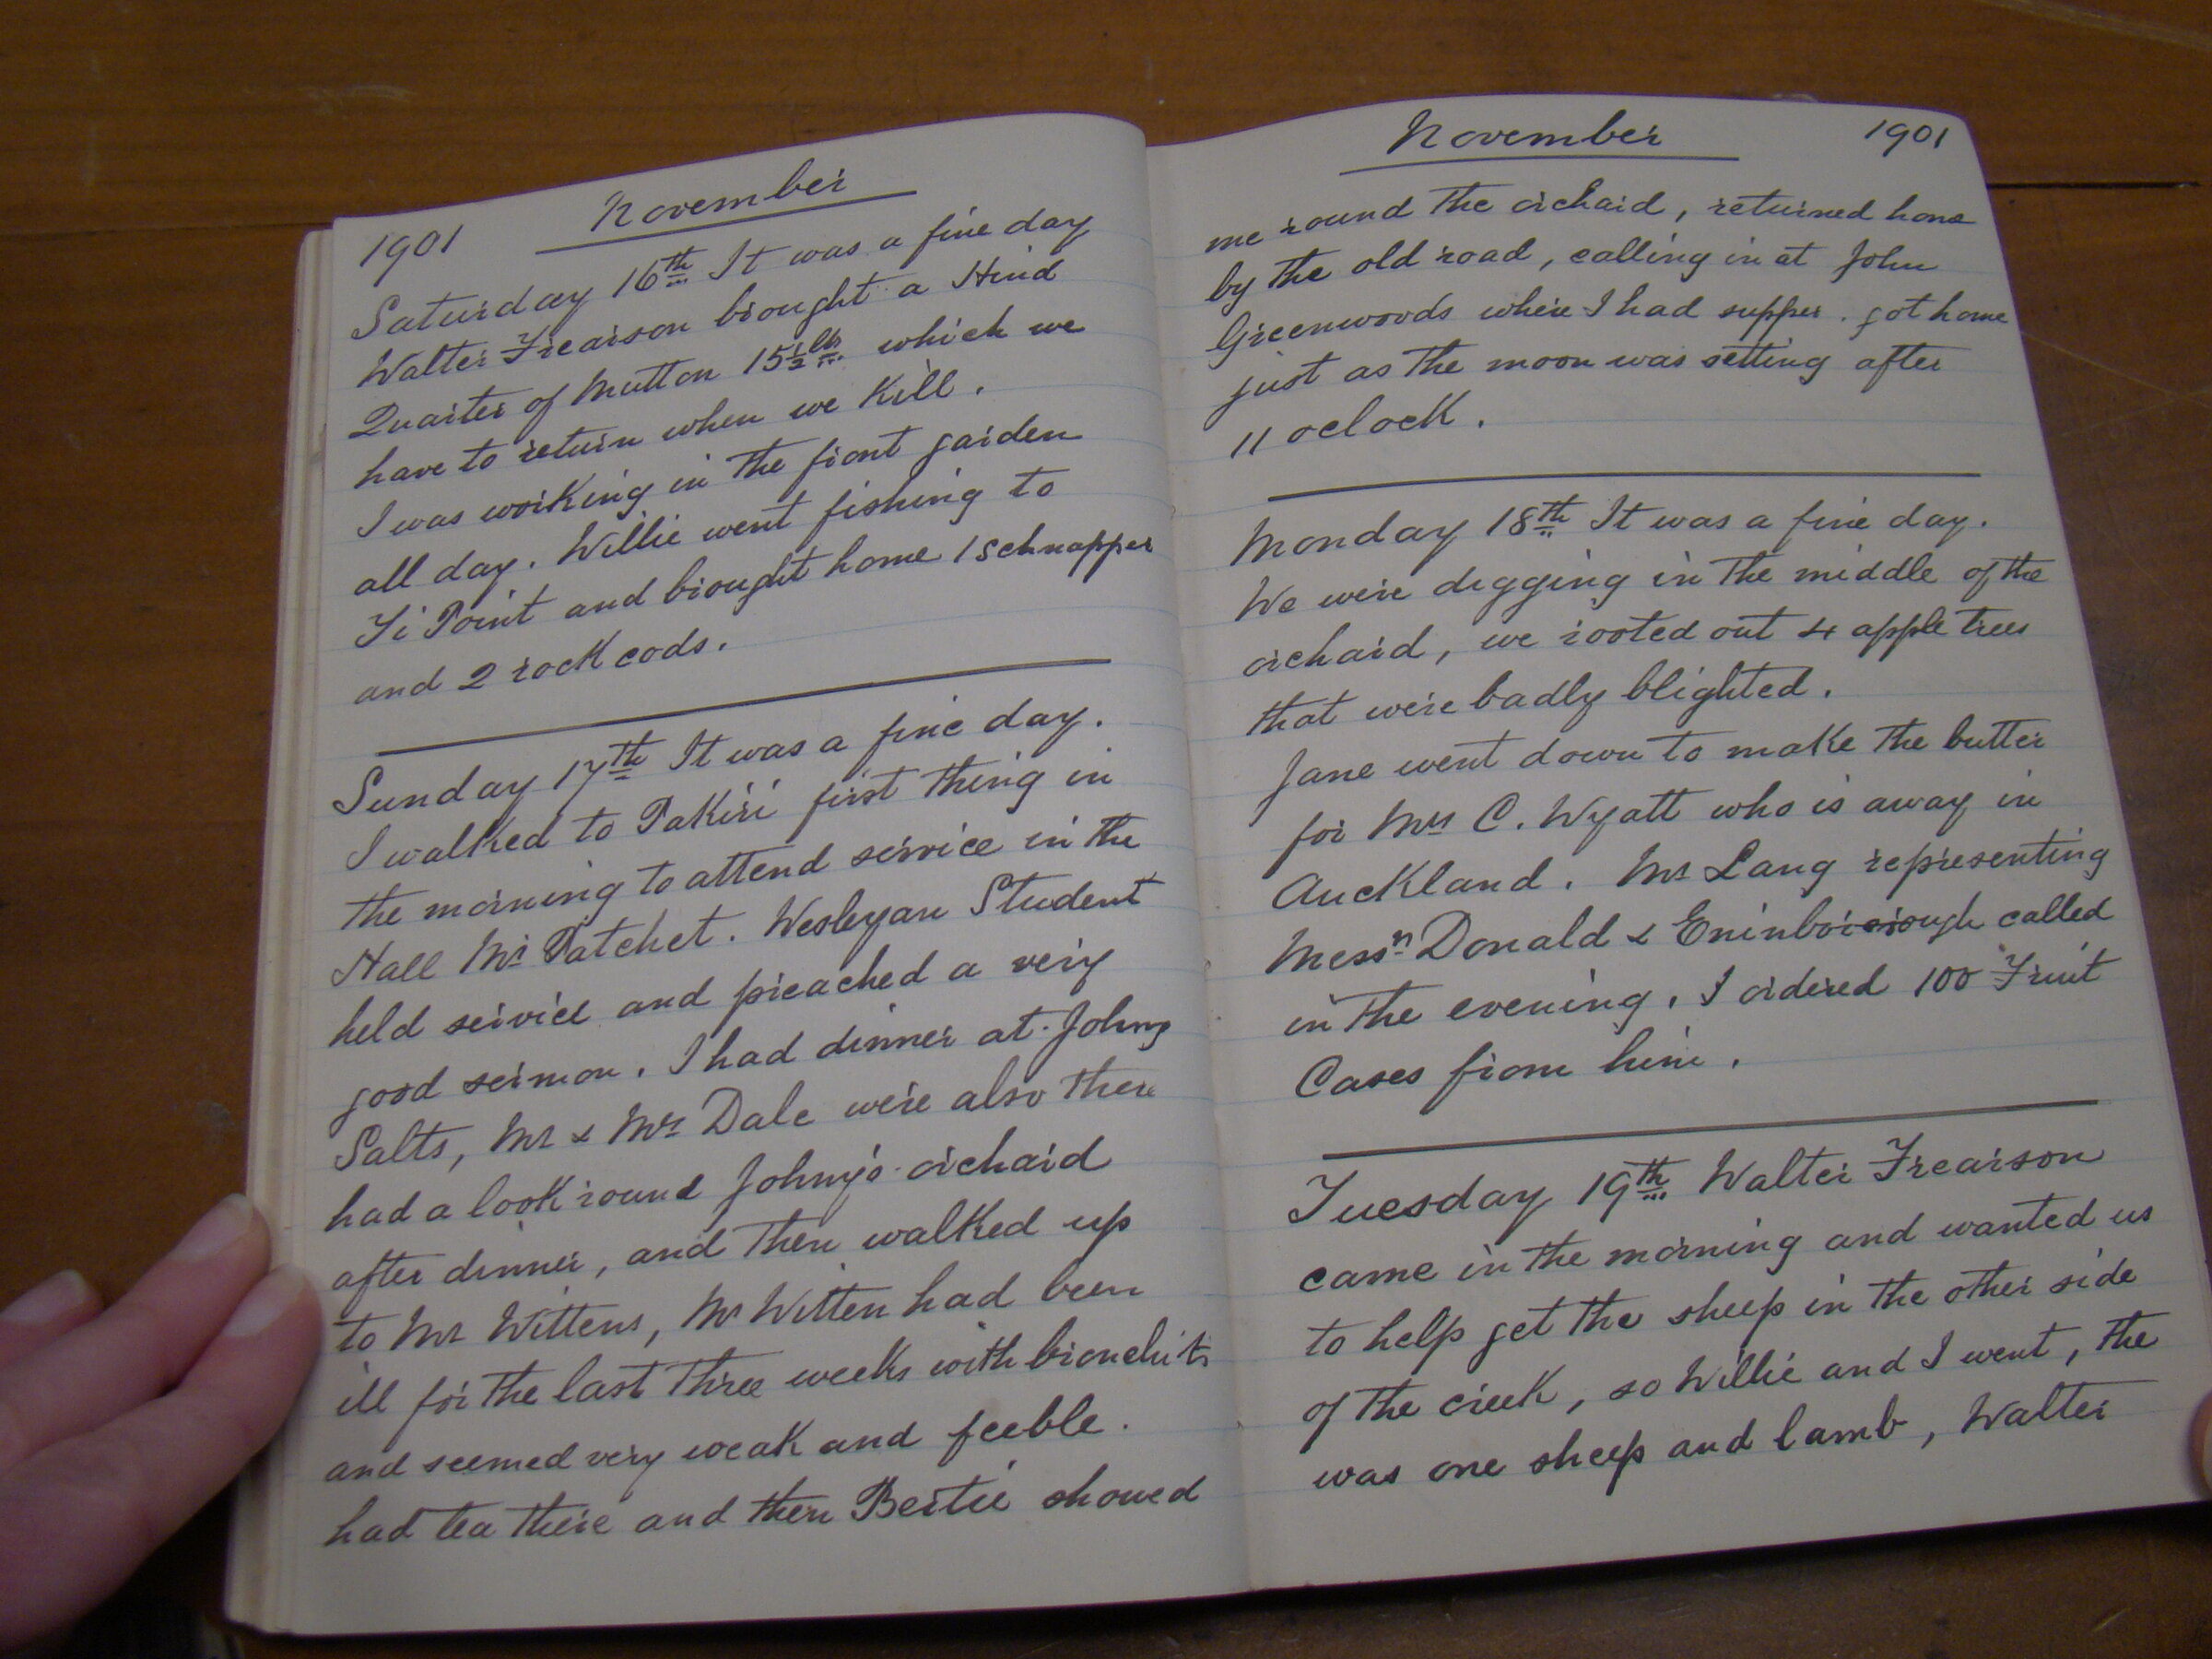 1901 November
Saturday 16th It was a fine day
Walter Frearson brought a Hind
Quarter of Mutton 15½ lbs which we
have to return when we kill.
I was working in the front garden
all day. Willie went fishing to
Ti Point and brought home 1 schnapper
and 2 rock cods.
Sunday 17th It was a fine day.
I walked to Pakiri first thing in
the morning to attend service in the
Hall Mr Patchet. Wesleyan Student
held service and preached a very
good sermon. I had dinner at Johny
Salts, Mr & Mrs Dale were also there
had a look round Johny's orchard
after dinner, and then walked up
to Mr Wittens, Mr Witten had been
ill for the last three weeks with bronchits
and seemed very weak and feeble.
had tea there and then Bertie showed
November 1901
me round the orchard, returned home
by the old road, calling in at John
Greenwoods where I had supper. got home
just as the moon was setting after
11 oclock.
Monday 18th It was a fine day.
We were digging in the middle of the
orchard, we rooted out 4 apple trees
that were badly blighted.
Jane went down to make the butter
for Mrs C. Wyatt who is away in
Auckland. Mr Lang representing
Messrs Donald & called
in the evening. I ordered 100 Fruit
Cases from him.
Tuesday 19th Walter Frearson
came in the morning and wanted us
to help get the sheep in the other side
of the creek, so Willie and I went, the
was one sheep and lamb, Walter